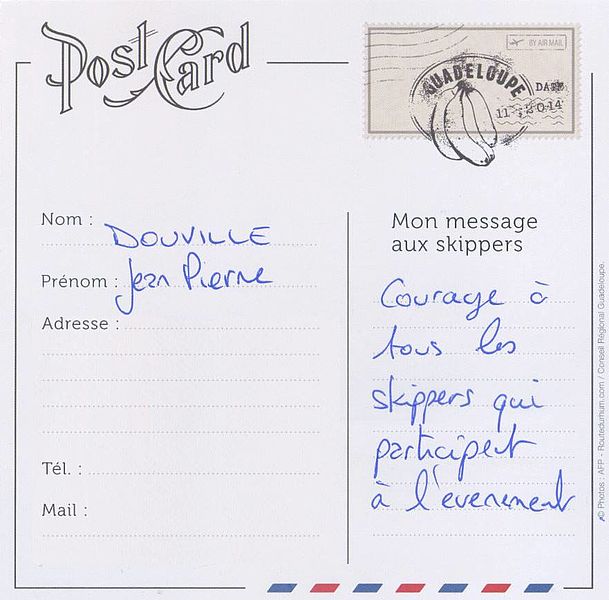 Post Card
BY AIR MAIL
GUADELOUPE
DATE
11 2014
Nom : DOUVILLE
Prénom : Jean Pierre
Adresse :
Tél. :
Mail :
Mon message
aux skippers
Courage à
tous les
skippers qui
participent
à l'evenement
© Photos : AFP - Routedurhum.com / Conseil Régional Guadeloupe.